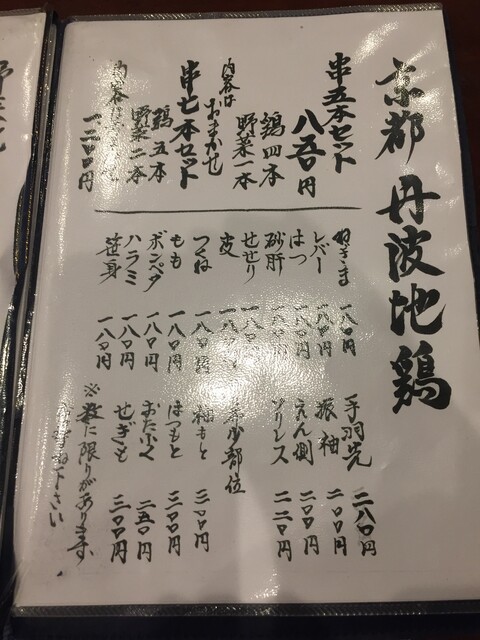 京都 丹波地鶏
串五本セット
八五〇円
鶏四本
野菜一本
内容はおまかせ
串七本セット
鶏五本
野菜二本
内容は
一二〇〇円
ねぎま 一八〇円
レバー 一八〇円
はつ 一八〇円
砂肝 一八〇円
せせり 一八〇円
皮 一八〇
つくね 一八〇円
もも 一八〇円
ボンペタ 一八〇円
ハラミ 一八〇円
笹身 一八〇円
手羽先 二八〇円
振袖 二〇〇円
えんがわ側 二二〇円
ソリレス 二二〇円
希少部位
袖もと 三〇〇円
はつもと 三〇〇円
おたふく 二五〇円
せぎも 三〇〇円
※数に限りがあります
下さい
野菜